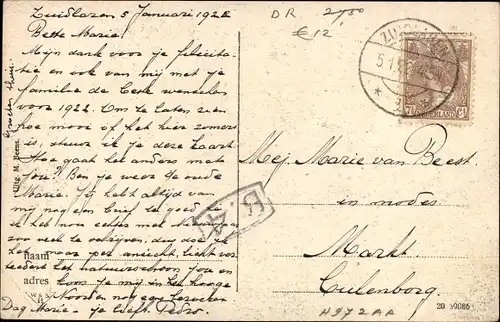 Zuidlaren 5 Januari 1922
Beste Marie.
Mijn dank voor je felicita-
tie en ook van mij met je
familie de beste wenschen
voor 1922. Om te laten zien
hoe mooi of het hier zomers
is, stuur ik je deze kaart.
Hoe gaat het anders met
jou? Ben je weer de oude
Marie. Jij hebt altijd van
mij nog een brief te goed
is het nog echter met Nieuwjaar
zoo veel te schrijven, dus doe je
het maar per ansicht, licht ver-
het natuurschoon jou en
kom je mij in het hooge
Noorden nog een bezoeken
Dag Marie. je Pedro.
Groeten thuis.
Uitg. M. Beens.
naam
adres
DR
27,50
€12
ZUIDLAREN
5.1
NEDERLAND
7½ CT
Mej Marie van Beest.
in modes
Markt.
Culenborg.
R.4
H972AA
20 39086